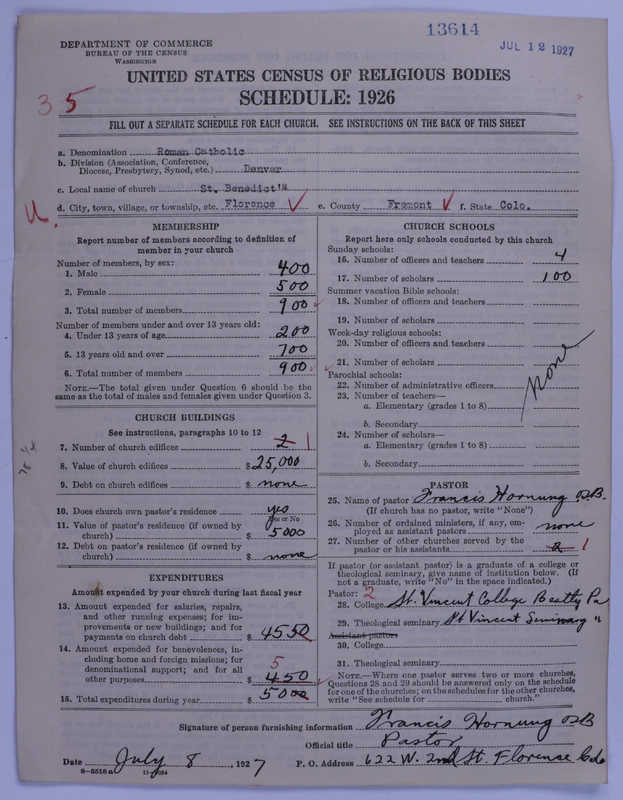 13614
JUL 12 1927
DEPARTMENT OF COMMERCE
BUREAU OF THE CENSUS
WASHINGTON
UNITED STATES CENSUS OF RELIGIOUS BODIES
SCHEDULE: 1926
35
FILL OUT A SEPARATE SCHEDULE FOR EACH CHURCH. SEE INSTRUCTIONS ON THE BACK OF THIS SHEET
a. Denomination Roman Catholic
b. Division (Association, Conference, Diocese, Presbytery, Synod, etc.) Denver
c. Local name of church St. Benedict's
d. City, town, village, or township, etc. Florence e. County Fremont f. State Colo.
MEMBERSHIP
Report number of members according to definition of
member in your church
Number of members, by sex:
1. Male 400
2. Female 500
3. Total number of members 900
Number of members under and over 13 years old:
4. Under 13 years of age 200
5. 13 years old and over 700
6. Total number of members 900
NOTE.—The total given under Question 6 should be the
same as the total of males and females given under Question 3.
CHURCH BUILDINGS
See instructions, paragraphs 10 to 12
7. Number of church edifices 2 1
8. Value of church edifices $25,000
9. Debt on church edifices $ none
10. Does church own pastor's residence? yes
Yes or No
11. Value of pastor's residence (if owned by
church) $ 5000
12. Debt on pastor's residence (if owned by
church) $ none
EXPENDITURES
Amount expended by your church during last fiscal year
13. Amount expended for salaries, repairs,
and other running expenses; for im-
provements or new buildings; and for
payments on church debt $ 4550
14. Amount expended for benevolences, in-
cluding home and foreign missions; for
denominational support; and for all
other purposes $ 450
5
15. Total expenditures during year $ 5000
CHURCH SCHOOLS
Report here only schools conducted by this church
Sunday schools:
16. Number of officers and teachers 4
17. Number of scholars 100
Summer vacation Bible schools:
18. Number of officers and teachers
19. Number of scholars
Week-day religious schools:
20. Number of officers and teachers
21. Number of scholars
none
Parochial schools:
22. Number of administrative officers
23. Number of teachers—
a. Elementary (grades 1 to 8)
b. Secondary
24. Number of scholars—
a. Elementary (grades 1 to 8)
b. Secondary
PASTOR
25. Name of pastor Francis Hornung O.S.B.
(If church has no pastor, write "None")
26. Number of ordained ministers, if any, em-
ployed as assistant pastors none
27. Number of other churches served by the
pastor or his assistants 2 1
If pastor (or assistant pastor) is a graduate of a college or
theological seminary, give name of institution below. (If
not a graduate, write "No" in the space indicated.)
Pastor: 2
28. College St. Vincent College Beatty Pa
29. Theological seminary St Vincent Seminary "
Assistant pastor:
30. College
31. Theological seminary
NOTE.—Where one pastor serves two or more churches,
Questions 28 and 29 should be answered only on the schedule
for one of the churches; on the schedules for the other churches,
write "See schedule for church."
Signature of person furnishing information Francis Hornung OSB
Official title Pastor
Date July 8, 1927 P. O. Address 622 W. 2nd St. Florence Colo
8—5318a